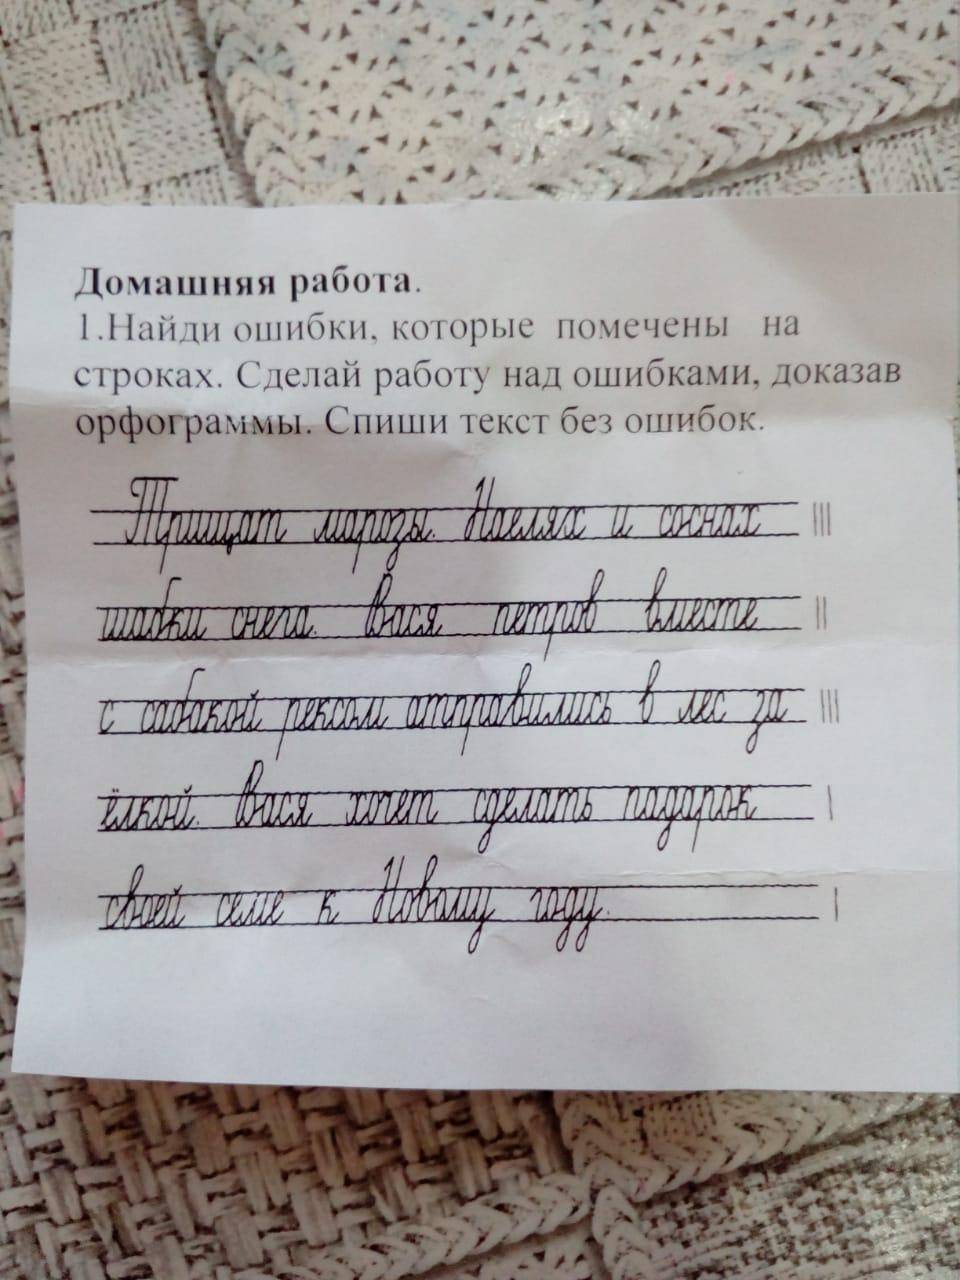 Домашняя работа.
1.Найди ошибки, которые помечены на
строках. Сделай работу над ошибками, доказав
орфограммы. Спиши текст без ошибок.
Трищат марозы. Наелях и соснах |||
шабки снега. Вася петров вместе ||
с сабакой рексом атправились в лес за |||
ёлкой. Вася хочет сделать падарок |
своей семе к Новому году. |